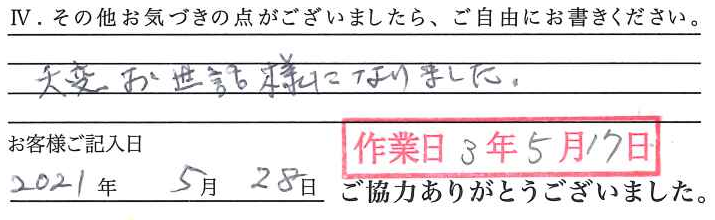 Ⅳ.その他お気づきの点がございましたら、ご自由にお書きください。
大変お世話様になりました。
お客様ご記入日
作業日3年5月17日
2021年 5月 28日 ご協力ありがとうございました。